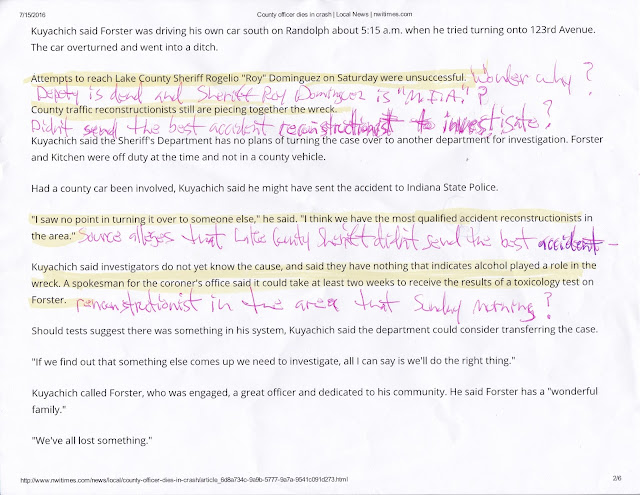 7/15/2016 County officer dies in crash | Local News | nwitimes.com
Kuyachich said Forster was driving his own car south on Randolph about 5:15 a.m. when he tried turning onto 123rd Avenue.
The car overturned and went into a ditch.
Attempts to reach Lake County Sheriff Rogelio "Roy" Dominguez on Saturday were unsuccessful. Wonder why?
Deputy is dead and Sheriff Roy Dominguez is "M.I.A."?
County traffic reconstructionists still are piecing together the wreck.
Didn't send the best accident reconstructionist to investigate?
Kuyachich said the Sheriff's Department has no plans of turning the case over to another department for investigation. Forster
and Kitchen were off duty at the time and not in a county vehicle.
Had a county car been involved, Kuyachich said he might have sent the accident to Indiana State Police.
"I saw no point in turning it over to someone else," he said. "I think we have the most qualified accident reconstructionists in
the area." Source alleges that Lake County Sheriff didn't send the best accident-
Kuyachich said investigators do not yet know the cause, and said they have nothing that indicates alcohol played a role in the
wreck. A spokesman for the coroner's office said it could take at least two weeks to receive the results of a toxicology test on
Forster. reconstructionist in the area that Sunday morning?
Should tests suggest there was something in his system, Kuyachich said the department could consider transferring the case.
"If we find out that something else comes up we need to investigate, all I can say is we'll do the right thing."
Kuyachich called Forster, who was engaged, a great officer and dedicated to his community. He said Forster has a "wonderful
family."
"We've all lost something."
http://www.nwitimes.com/news/local/county-officer-dies-in-crash/article_6d8a734c-9a9b-5777-9a7a-9541c091d273.html 2/6